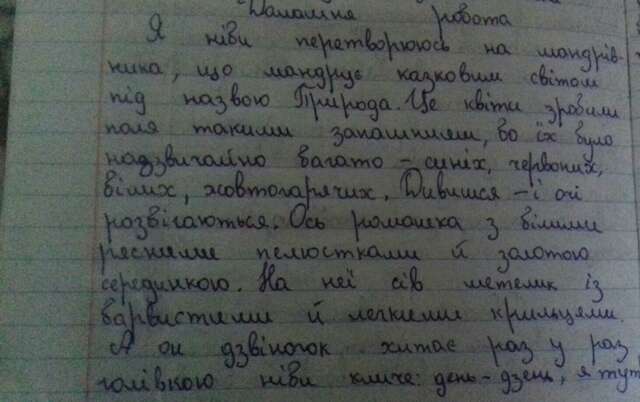 Домашня робота
Я ніби перетворююсь на мандрів-
ника, що мандрує казковим світом
під назвою Природа. Це квіти зробили
поля такими запашними, бо їх було
надзвичайно багато – синіх, червоних,
білих, жовтогарячих. Дивишся – і очі
розбігаються. Ось ромашка з білими
рясними пелюстками й золотою
серединкою. На неї сів метелик із
барвистими й легкими крильцями.
А он дзвіночок хитає раз у раз
голівкою ніби кличе: день-дзень, я тут